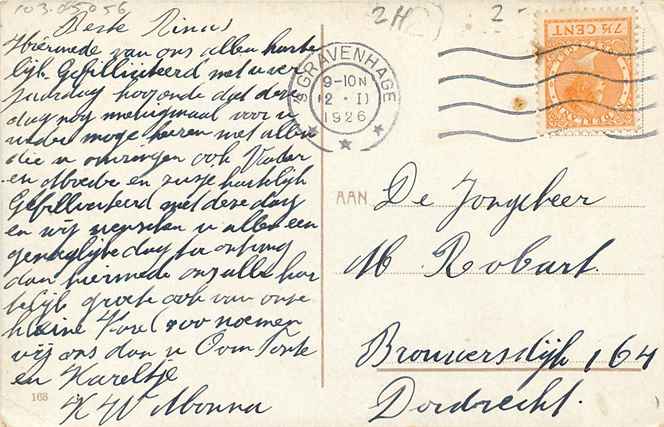 103.05056
Beste Rinus
Hiermede van ons allen harte
lijk Gefilliciteerd met uw ver
jaardag hoopende dat deze
dag nog menigmaal voor u
weder moge keeren met allen
die u omringen ook Vader
en Moeder en zusje hartelijk
Gefilliciteerd met deze dag
en wij wenschen u allen een
genoeglijke dag toe ontvang
dan hiermede onze alle har
telijk groete ook van onze
kleine Karel zoo noemen
wij ons dan u Oom Tante
en Kareltje
K W Monna
168
2H
2-
7½ CENT
'S GRAVENHAGE
9-10N
12 · II
1926
AAN
De Jongeheer
M. Robart.
Brouwersdijk 164
Dordrecht.